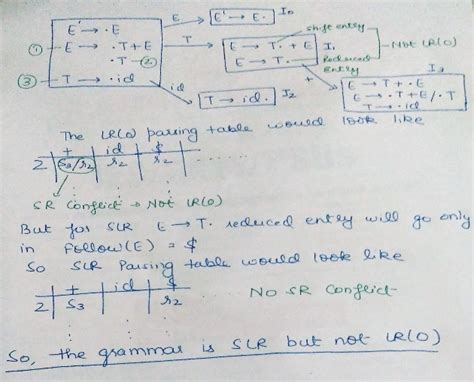 E' → ·E
E
E' → E· I0
① E → ·T+E
·T —②
③ T → ·id
T
E → T·+E
E → T·
I1
shift entry
Reduced entry
Not LR(0)
id
T → id· I2
+
I3
E → T+·E
E → ·T+E/·T
T → ·id
The LR(0) parsing table would look like
+ id $
2 S3/r2 r2 r2 ......
SR Conflict → Not LR(0)
But for SLR E → T· reduced entry will go only
in Follow(E) = $
So SLR Parsing table would look like
+ id $
2 S3 r2 ......
No SR Conflict
So, the grammar is SLR but not LR(0)